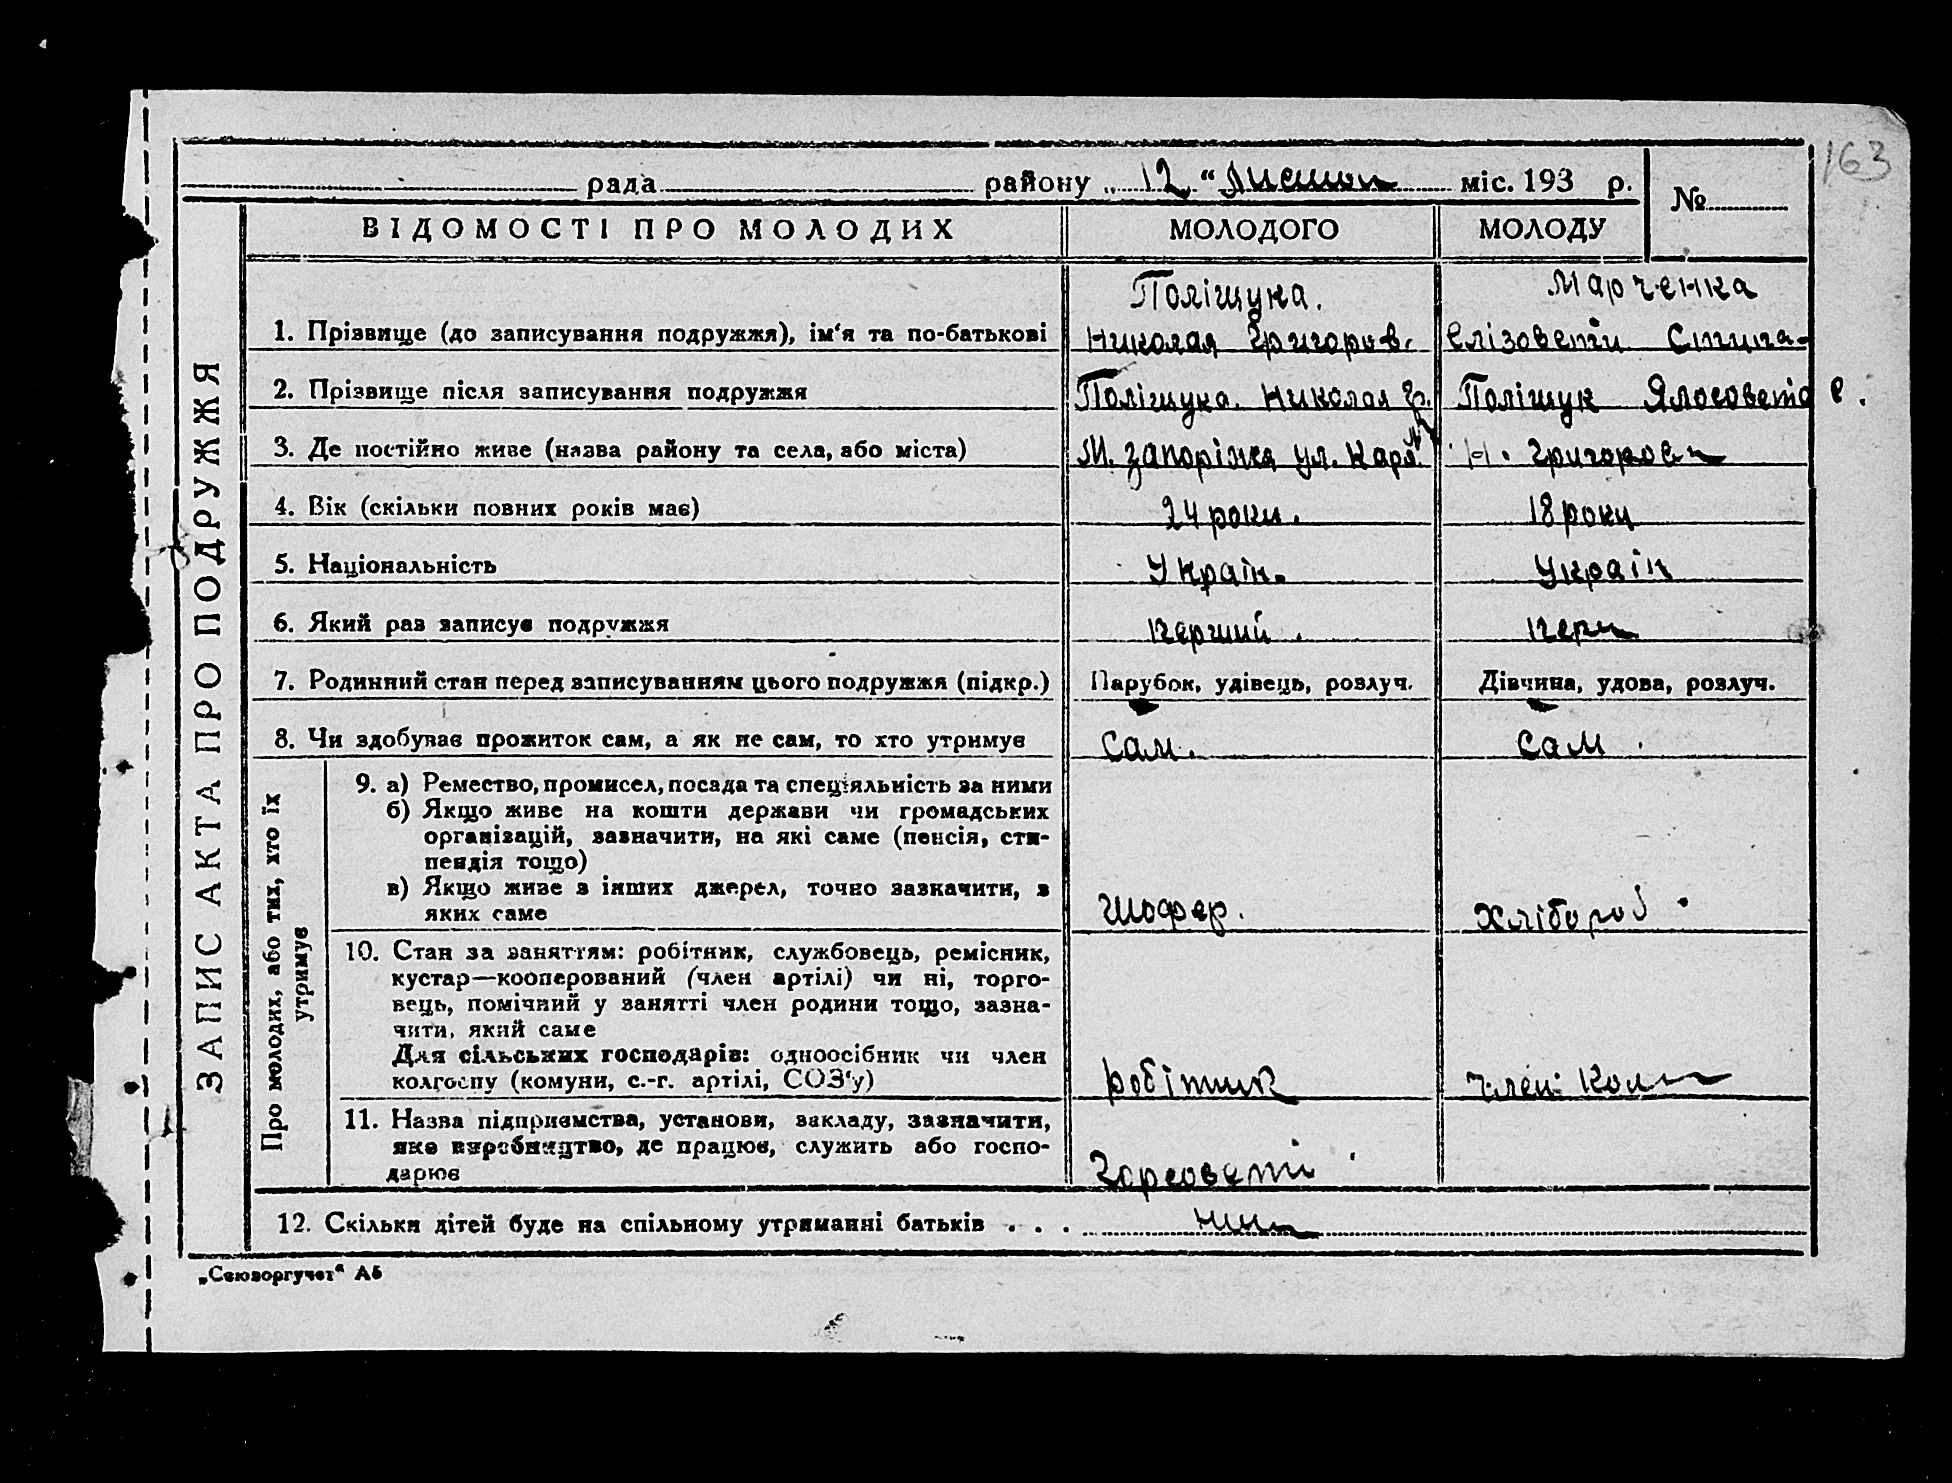 163
рада районну „ 12 “ міс. 193 р. №
ВІДОМОСТІ ПРО МОЛОДИХ МОЛОДОГО МОЛОДУ
Поліщука. Марченка
1. Прізвище (до записування подружжя), ім‘я та по-батькові Николая Григоров. Єлізовети
2. Прізвище після записування подружжя Поліщука. Николая Гр. Поліщук
3. Де постійно живе (назва району та села, або міста) М. Запоріжя ул. Карл. Н. Григоров
4. Вік (скільки повних років має) 24 роки. 18 роки
5. Національність Україн. Україн
6. Який раз записує подружжя перший. перш
7. Родинний стан перед записуванням цього подружжя (підкр.) Парубок, удівець, розлуч. Дівчина, удова, розлуч.
8. Чи здобував прожиток сам, а як не сам, то хто утримує Сам. Сам.
9. а) Ремество, промисел, посада та спеціяльність за ними
б) Якщо живе на кошти держави чи громадських
організацій, зазначити, на які саме (пенсія, сти-
пендія тощо)
в) Якщо живе з інших джерел, точно зазначити, з
яких саме Шофер. Хлібороб.
10. Стан за заняттям: робітник, службовець, ремісник,
кустар—кооперований (член артілі) чи ні, торго-
вець, помічний у занятті член родини тощо, зазна-
чити, який саме
Для сільських господарів: одноосібник чи член
колгоспу (комуни, с.-г. артілі, СОЗ‘у) робітник член
11. Назва підприємства, установи, закладу, зазначити,
яке виробництво, де працює, служить або госпо-
дарює
12. Скільки дітей буде на спільному утриманні батьків . . .
ЗАПИС АКТА ПРО ПОДРУЖЖЯ
Про молодих, або тих, хто їх
утримує
„Союзоргучет“ А5